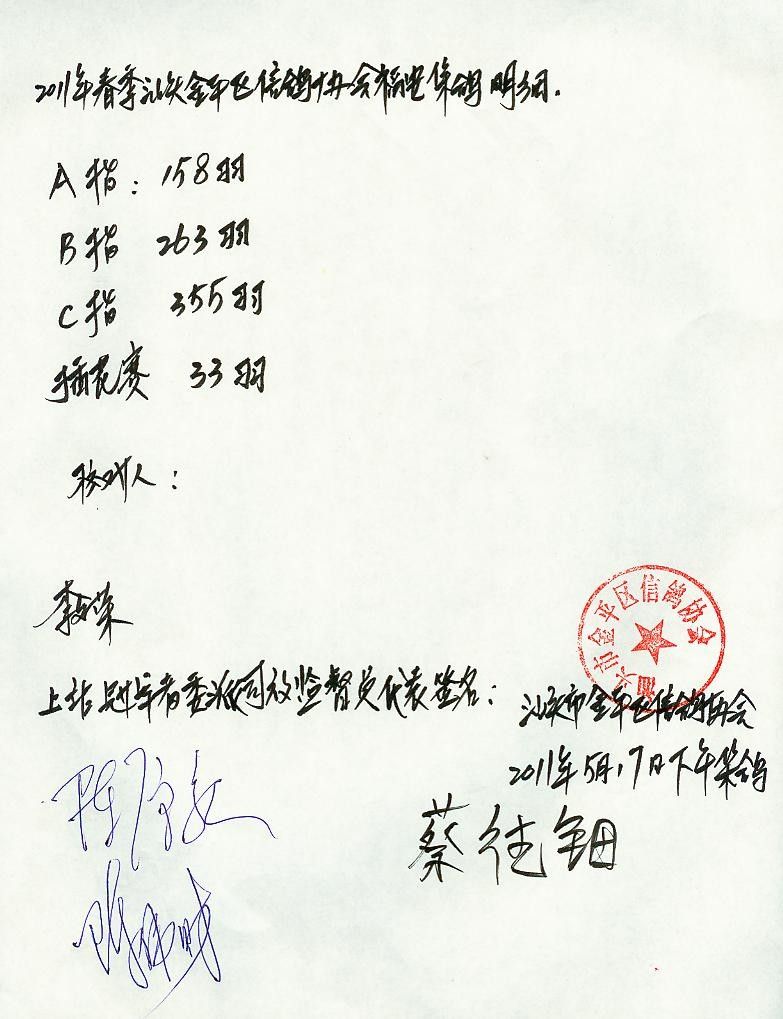 2011年春季汕头金平区信鸽协会福鼎集鸽明细.
A指: 158羽
B指 263羽
C指 355羽
插花赛 33羽
核对人:
李荣
上站 委派司放监督员代表签名:
汕头市金平区信鸽协会
汕头市金平区信鸽协会
2011年5月17日下午集鸽
蔡钿